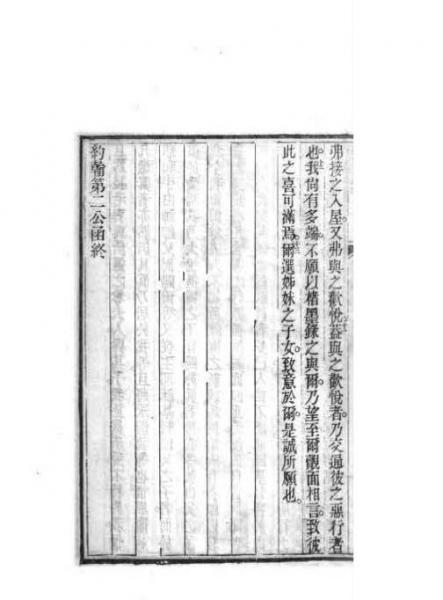 弗接之入屋。又弗與之歡悅。蓋與之歡悅者。乃交通彼之惡行者
也。我尚有多端。不願以楮墨錄之與爾。乃望至爾覿面相言。致彼
此之喜可滿焉。爾選姊妹之子女。致意於爾。是誠所願也。
約翰第二公函終